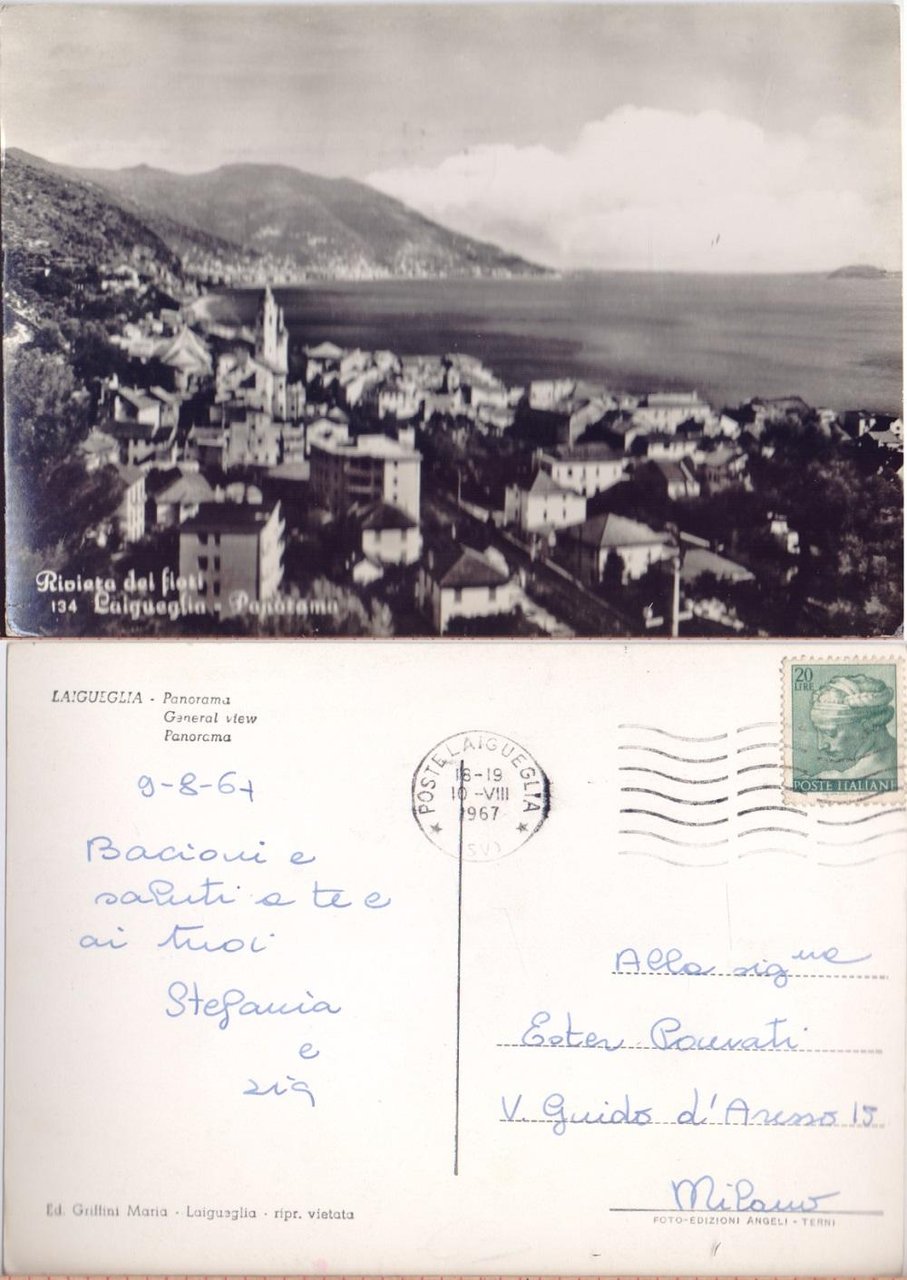 Riviera dei fiori
134 Laigueglia - Panorama
LAIGUEGLIA - Panorama
General view
Panorama
20
LIRE
POSTE ITALIANE
POSTE LAIGUEGLIA
18-19
10-VIII
1967
(SV)
9-8-67
Bacioni e
saluti a te e
ai tuoi
Stefania
e
zia
Alla sig.na
Ester
V. Guido d'Arezzo 15
Milano
Ed. Griffini Maria - Laigueglia - ripr. vietata
FOTO-EDIZIONI ANGELI - TERNI